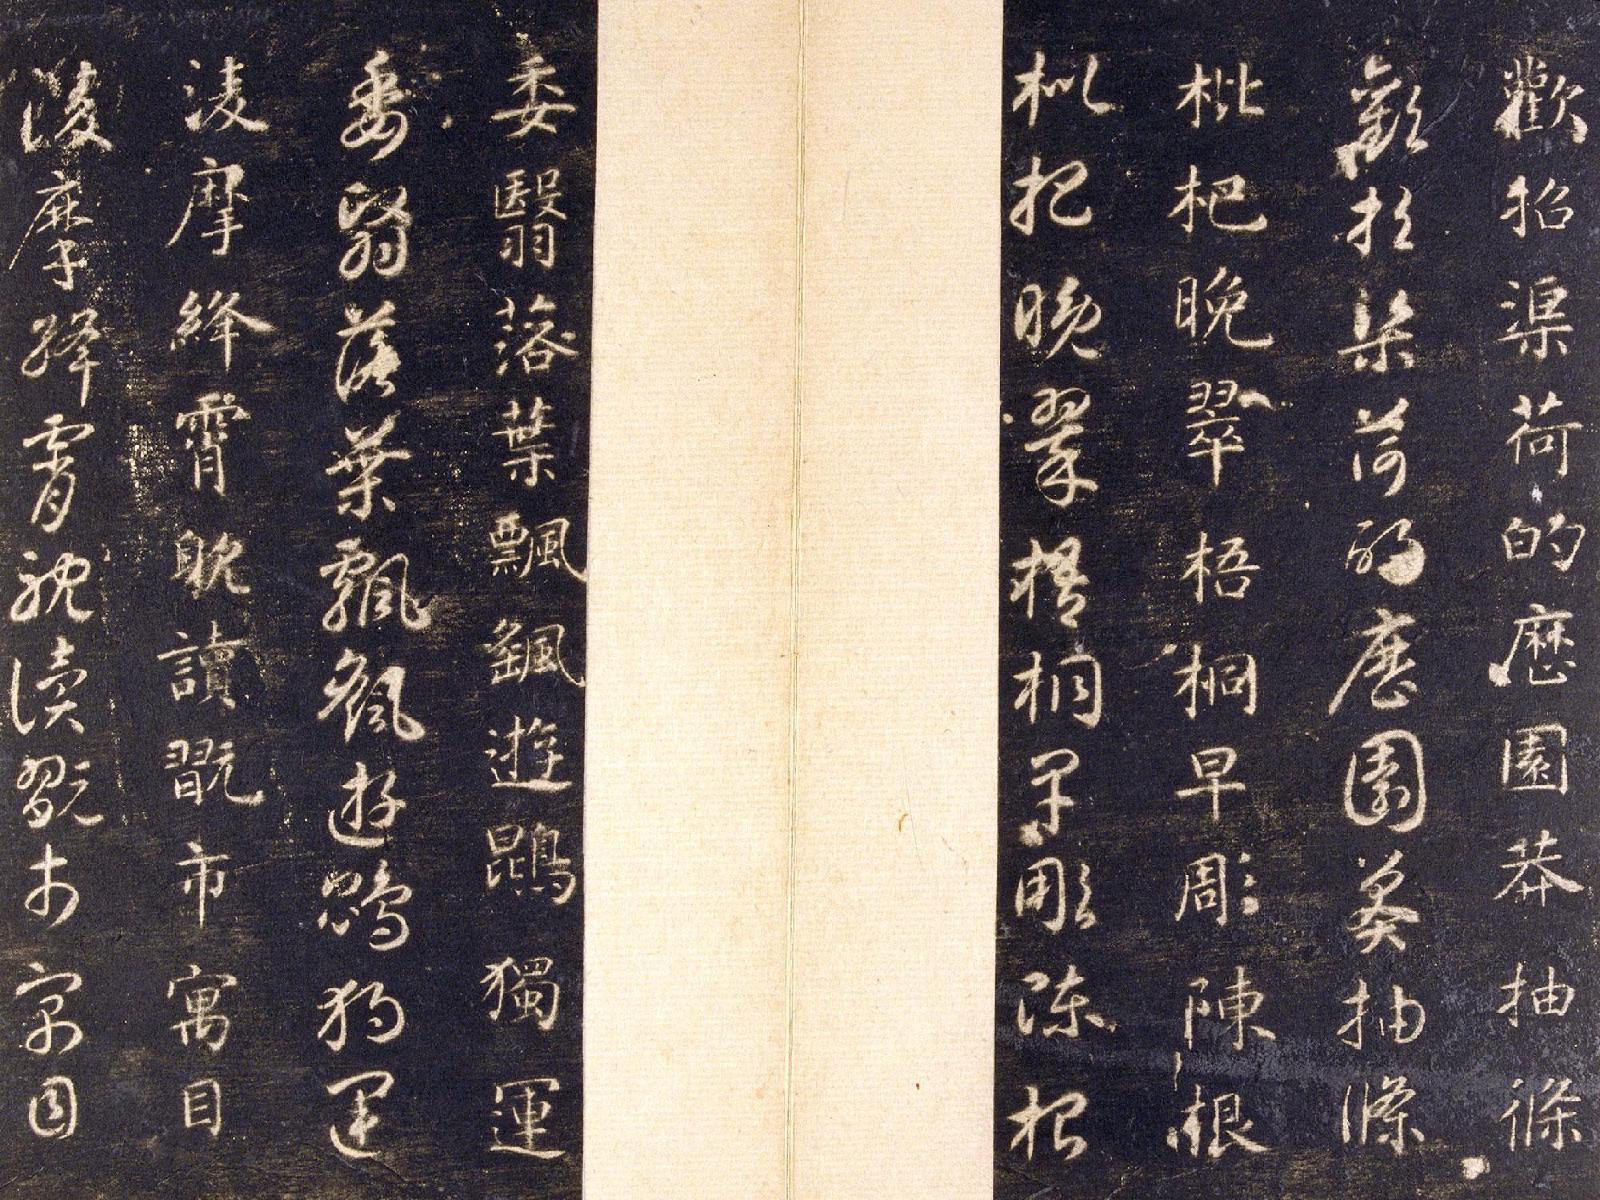 歡招渠荷的歷園莽抽條
歡招渠荷的歷園莽抽條
枇杷晚翠梧桐早彫陳根
枇杷晚翠梧桐早彫陳根
委翳落葉飄颻遊鵾獨運
委翳落葉飄颻遊鵾獨運
淩摩絳霄耽讀翫市寓目
淩摩絳霄耽讀翫市寓目